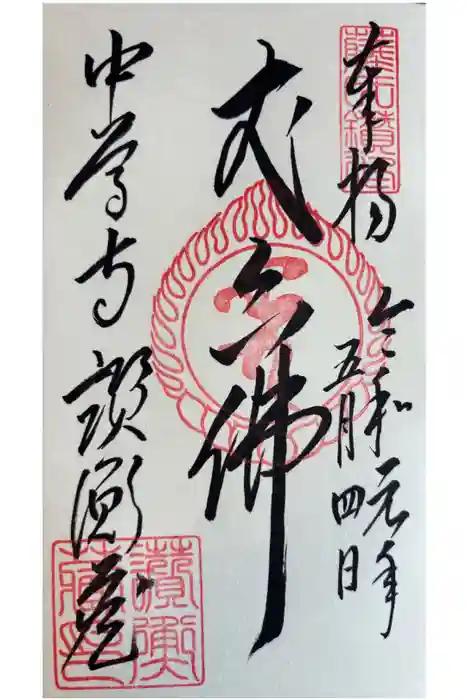 奉拝
令和元年
五月四日
丈六佛
中尊寺 讃衡蔵
讃衡
蔵印